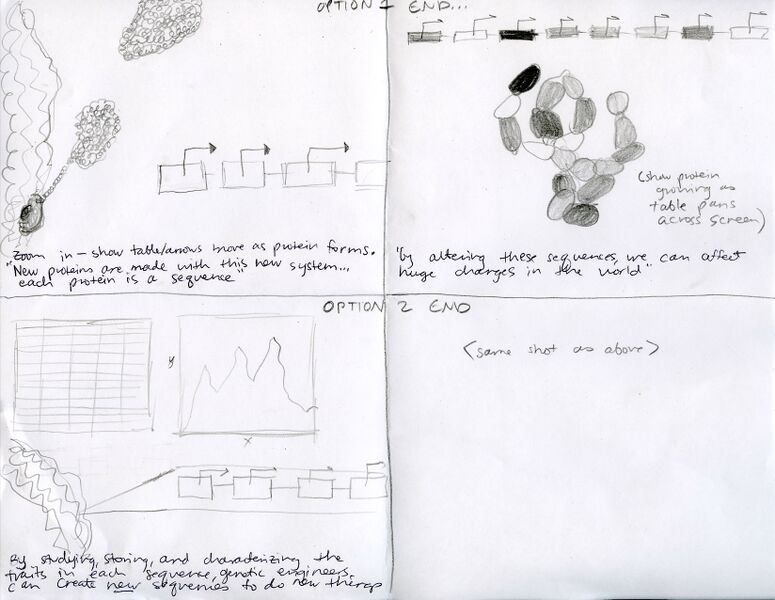 OPTION 1 END...
Zoom in - show table/arrows move as protein forms.
"New proteins are made with this new system...
each protein is a sequence"
(show protein
growing as
table pans
across screen)
"by altering these sequences, we can affect
huge changes in the world"
OPTION 2 END
y
x
(same shot as above)
By studying, storing, and characterizing the
traits in each sequence, genetic engineers
can create new sequences to do new therap